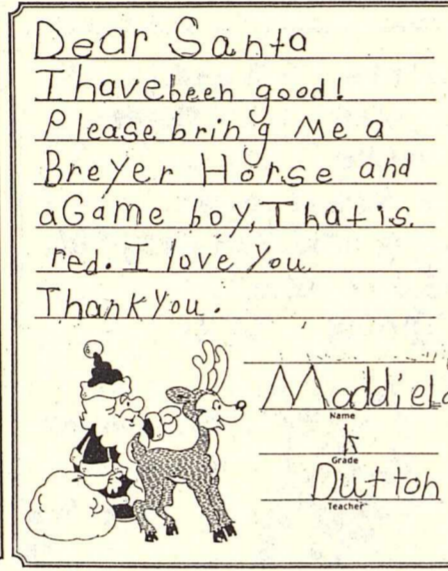 Dear Santa
I have been good!
Please bring Me a
Breyer Horse and
a Game boy, That is.
red. I love You
Thank You.
Maddie
Name
K
Grade
Dutton
Teacher